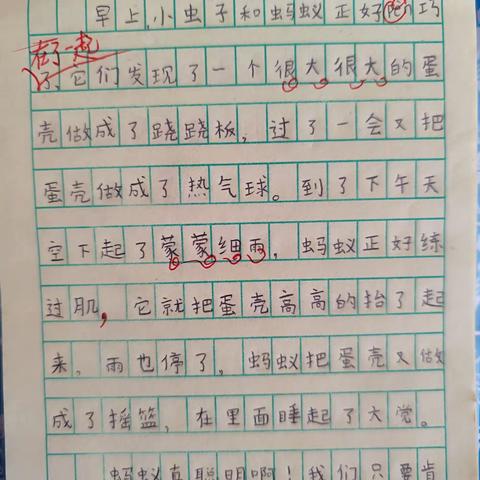 早上，小虫子和蚂蚁正好巧
在了一起
了，它们发现了一个很大很大的蛋
壳做成了跷跷板，过了一会又把
蛋壳做成了热气球。到了下午天
空下起了蒙蒙细雨，蚂蚁正好练
过肌，它就把蛋壳高高的抬了起
来，雨也停了，蚂蚁把蛋壳又做
成了摇篮，在里面睡起了大觉。
蚂蚁真聪明啊！我们只要肯